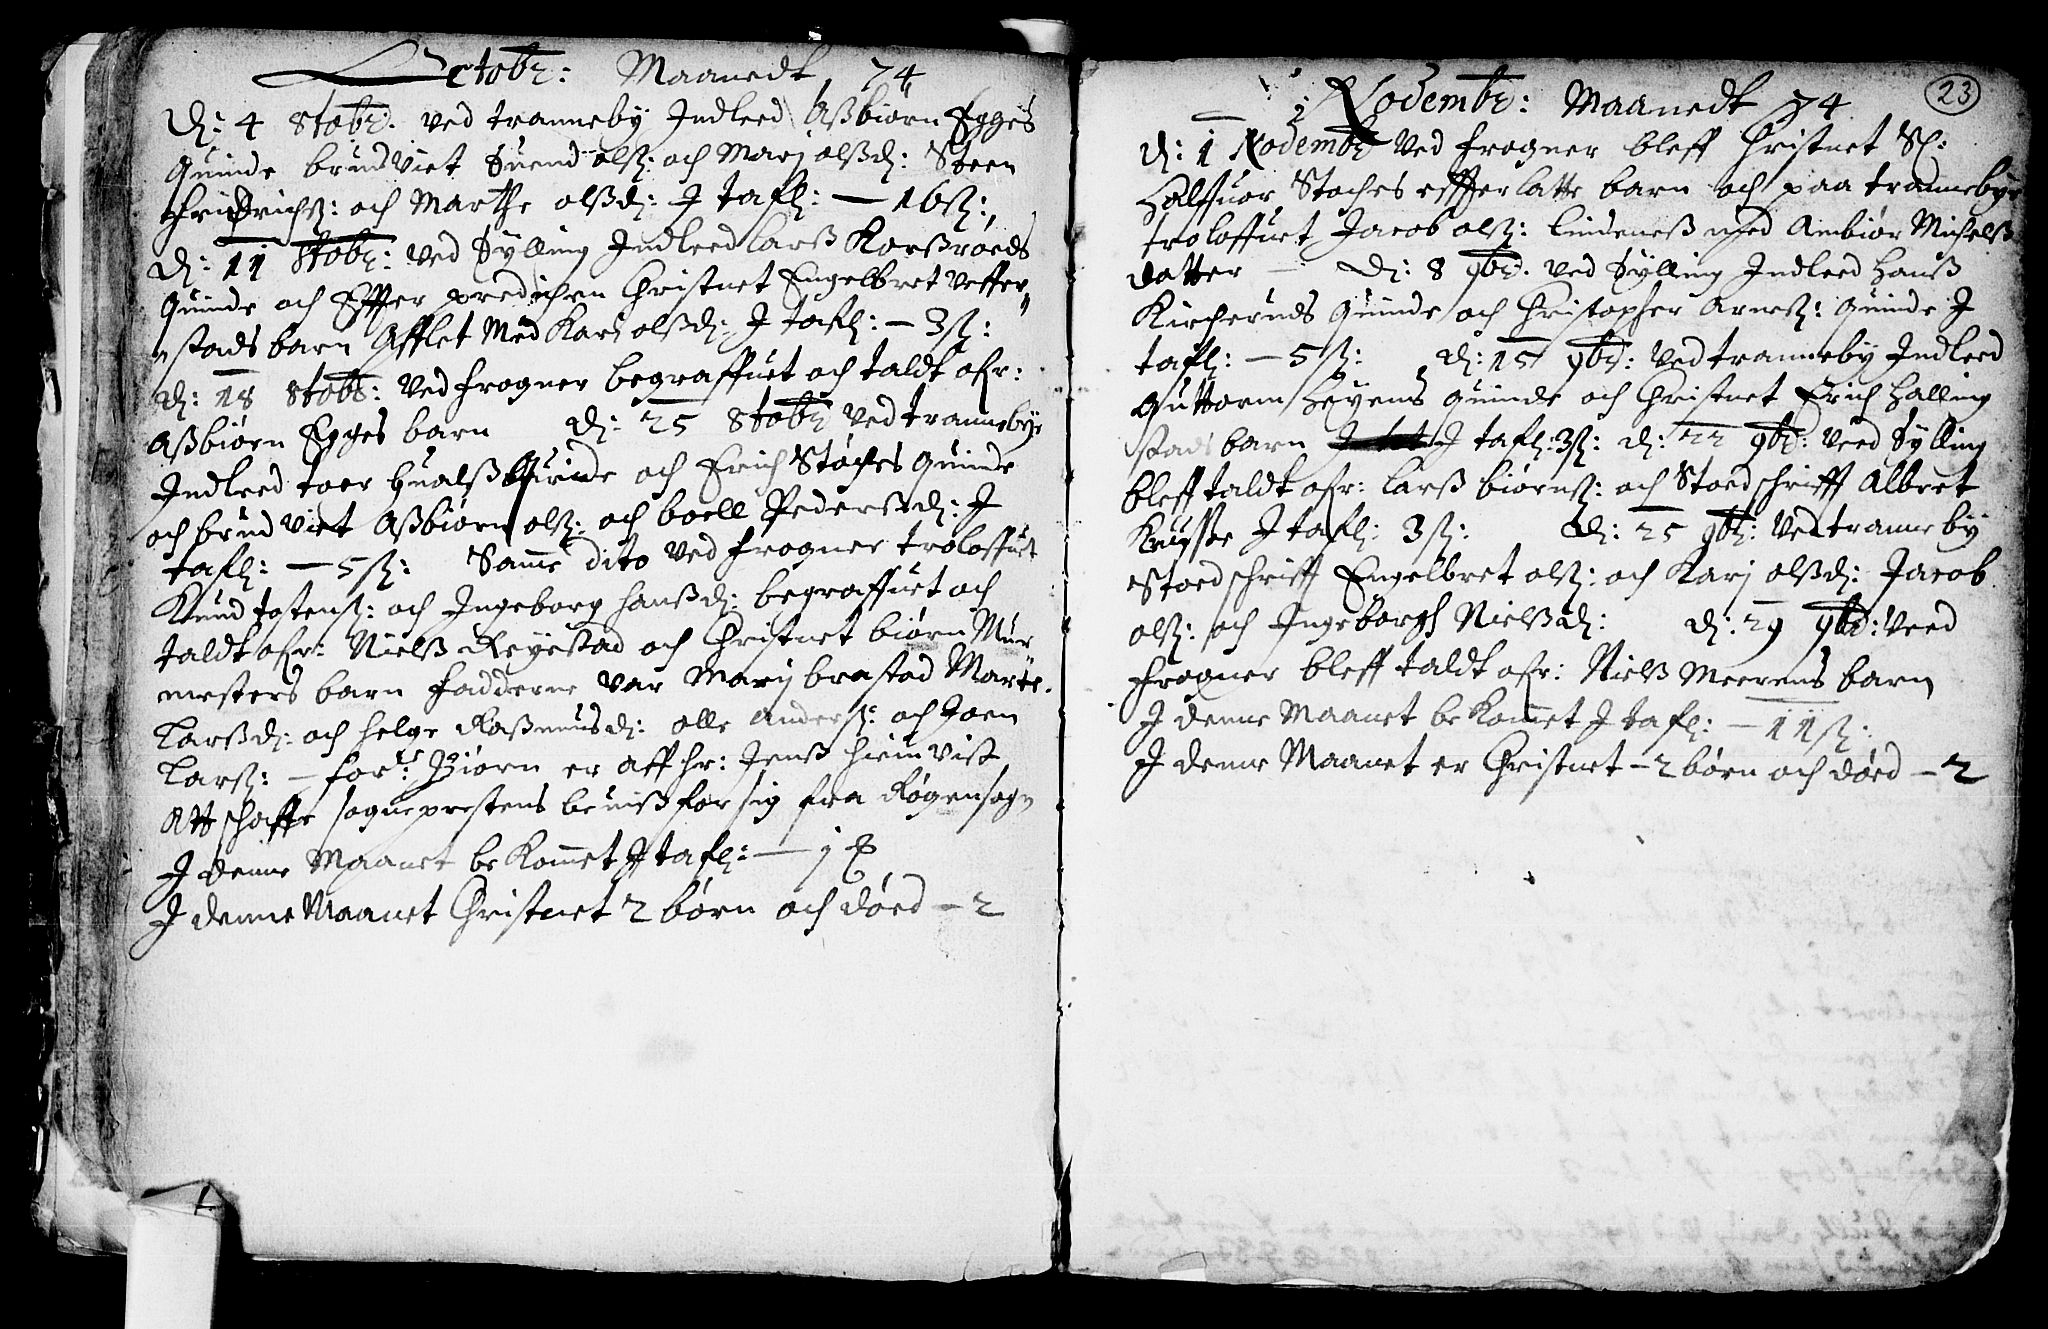 Octobr: Maanedt 74
D: 4 8tobr. ved tranneby Indleed Aßbiørn Egges
quinde brudviet Suend olß: och Marj olßd: Steen
fhridrichß: och Marthe olßd: J tafl: — 16ß:
D: 11 8tobr: ved Sylling Indleed larß Korßrøeds
quinde och Effter predichen Christnet Engelbret Veffer„
„stads barn Afflet Med Karj olßd: J tafl: — 3ß:
D: 18 8tobr: ved frogner begraffuet och taldt ofr:
Aßbiørn Egges barn D: 25 8tobr ved trannebye
Indleed toer hualß quinde och Erich Støches quinde
och brudviet Aßbiørn olß: och boell Pederßd: J
tafl: — 5ß: Samme dito ved frogner troloffuet
Knud Jostenß: och Ingeborg hanßd: begraffuet och
taldt ofr: Nielß Reyestad och Christnet biørn Mur
mesters barn fadderne var Marij brastad Marte
Larßd: och helge Raßmusd: olle anderß: och Joen
Larß: — for: Biørn er aff hr: Jenß hiemvist
Att schaffe sogneprestens beuiß for sig fra Røgensogn
J denne Maanet bekommet J tafl: — 1
J denne Maanet Christnet 2 børn och døed — 2
23
Novembr: Maanedt 74
D: 1 Novembr ved frogner bleff Christnet Sl:
Halfuor Stoches effterlatte barn och paa trannebye
troloffuet Jacob olß: lindeneß med Ambiør Michelß
datter — D: 8 9br. ved Sylling Indleed hanß
Kircheruds quinde och Christopher Arneß: quinde J
tafl: — 5ß: D: 15 9br: ved tranneby Indleed
Guttorm quinde och Christnet Erich Halling
stads barn J tafl: 3ß: D: 22 9br: veed Sylling
bleff taldt ofr: larß biørnß: och Stoedschrifft Albret
J tafl: 3ß: D: 25 9br: ved tranneby
Stoedschrifft Engelbret olß: och Karj olßd: Jacob
olß: och Ingeborgh Nielßd: D: 29 9br: veed
frogner bleff taldt ofr: Nielß Meerens barn
J denne Maanet bekommet J tafl: — 11ß:
J denne Maanet er Christnet — 2 børn och døed — 2